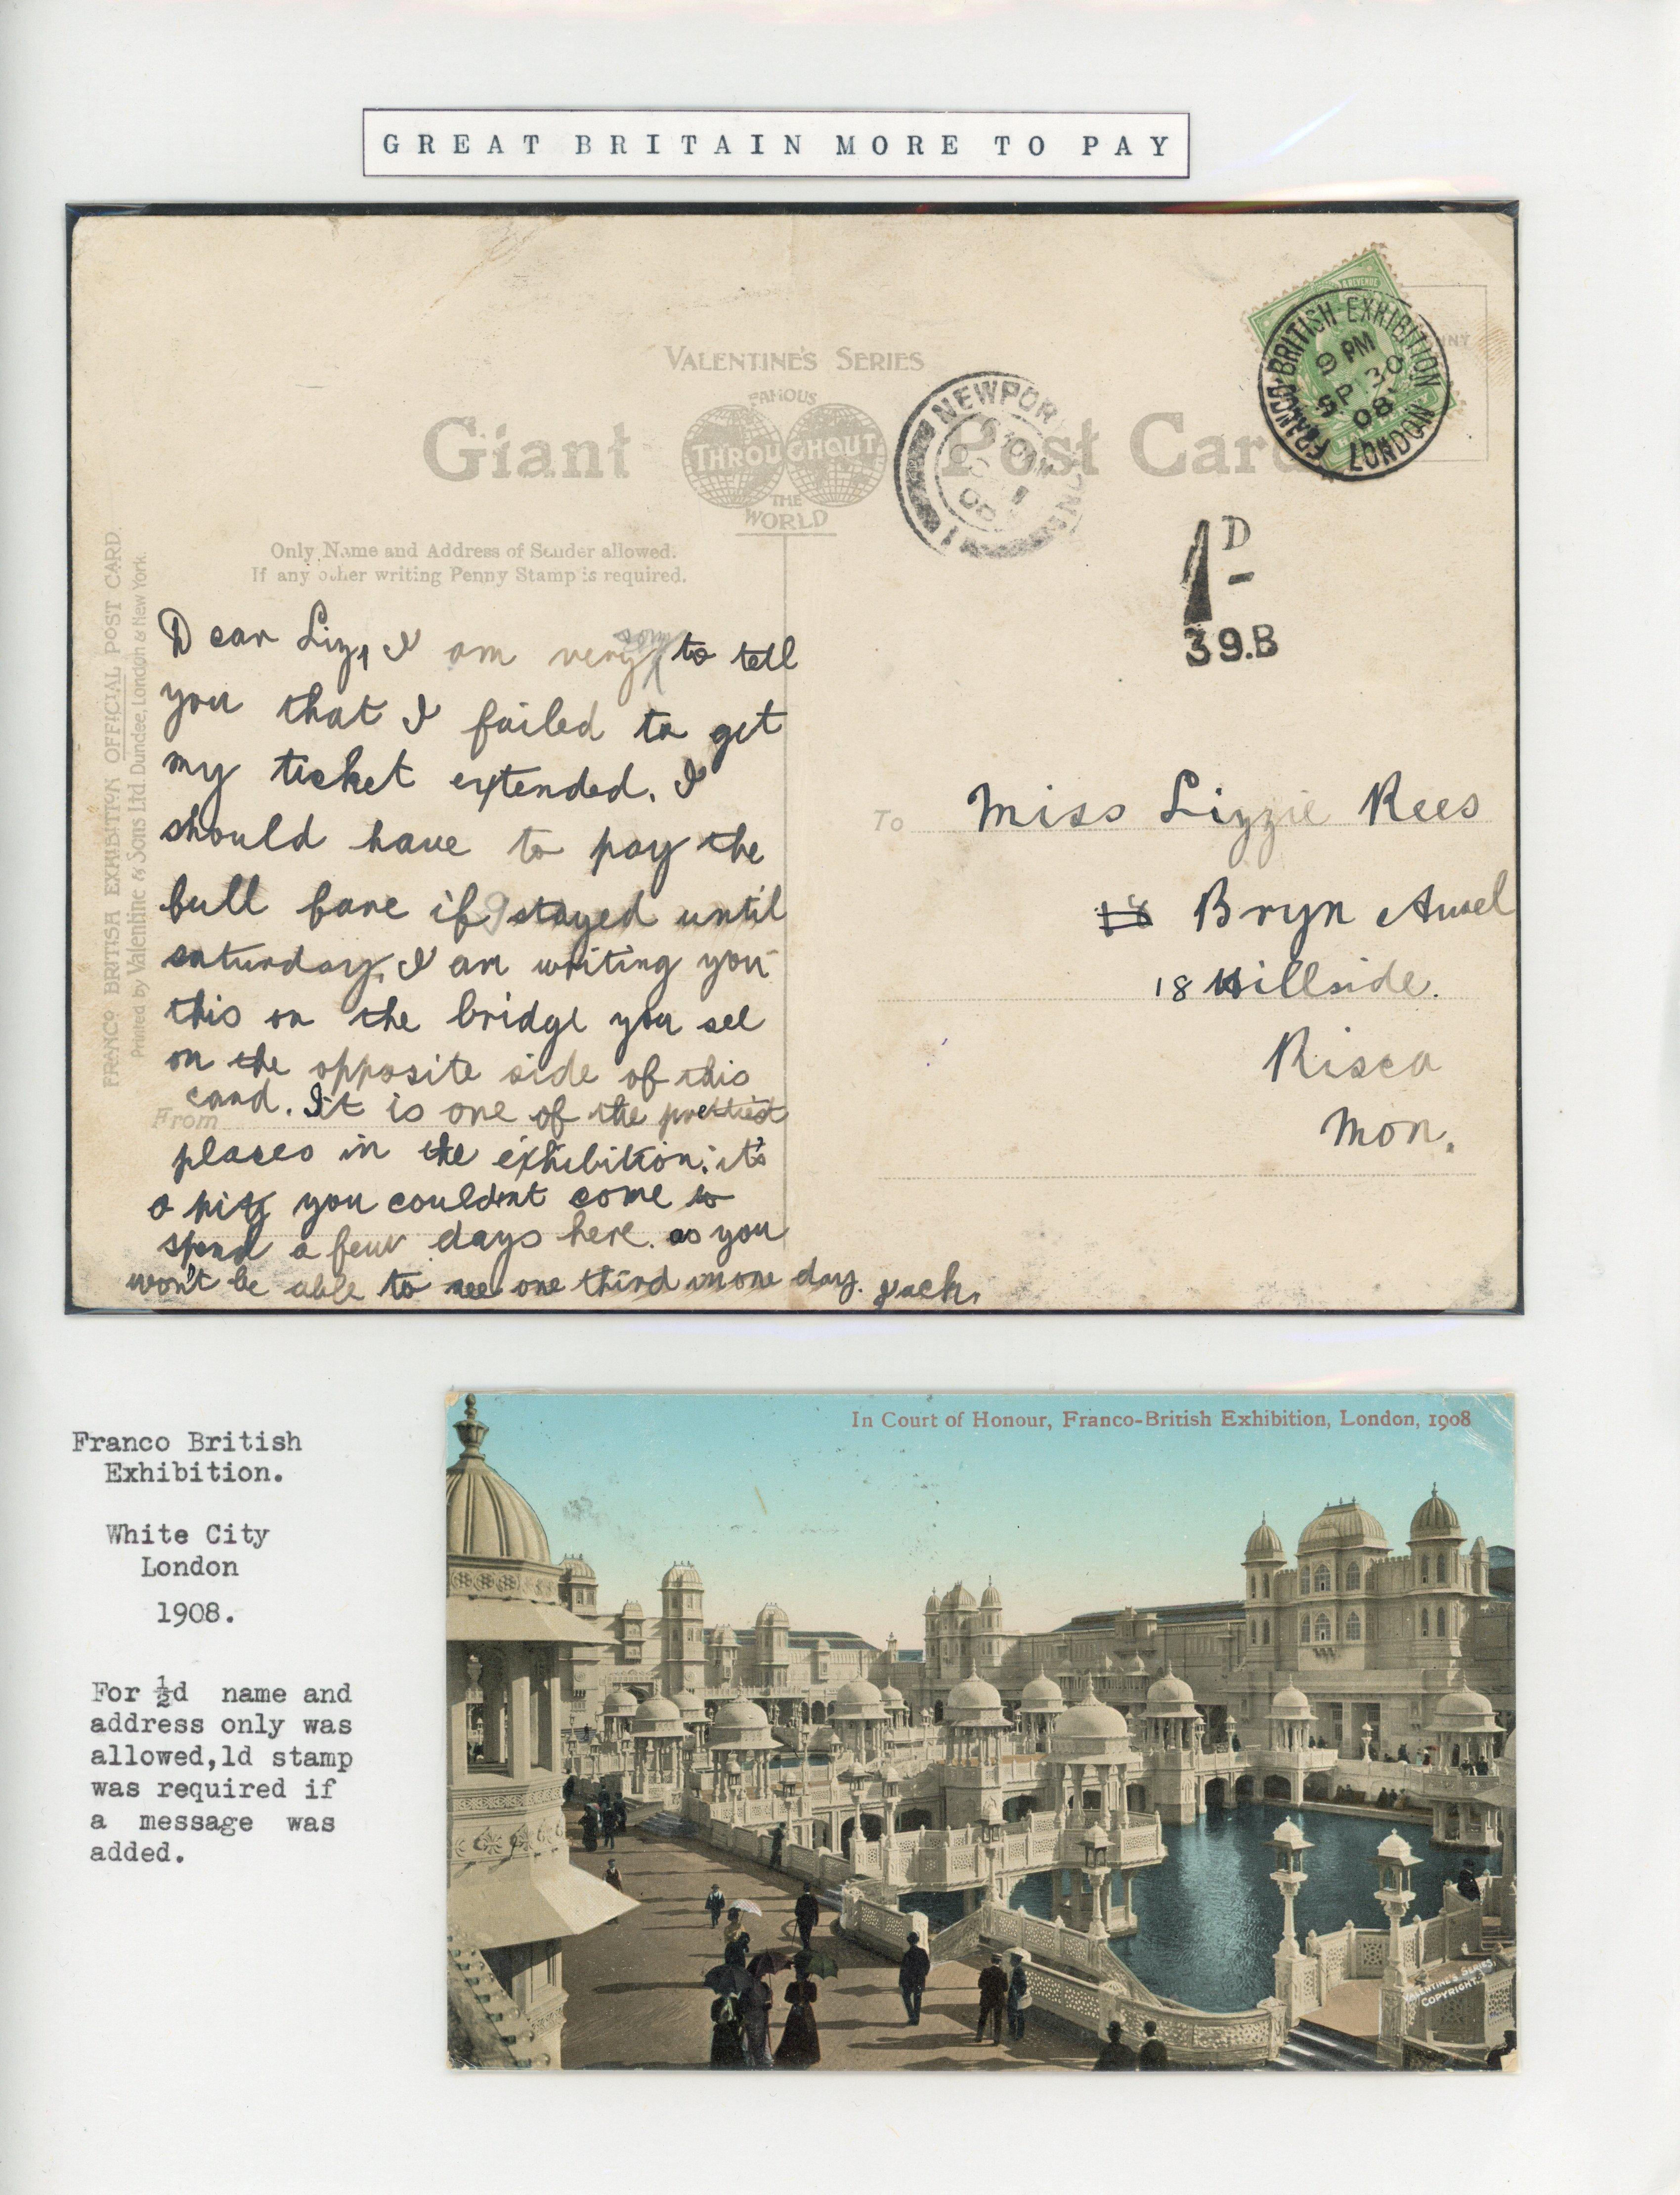 GREAT BRITAIN MORE TO PAY
VALENTINE'S SERIES
FAMOUS
Giant THROUGHOUT Post Car
THE
WORLD
FRANCO-BRITISH EXHIBITION
9 PM
SP 30
08
LONDON
NEWPOR
OC 1
08
1
1D
39.B
Only Name and Address of Sender allowed.
If any other writing Penny Stamp is required.
FRANCO BRITISH EXHIBITION OFFICIAL POST CARD.
Printed by Valentine & Sons Ltd. Dundee, London & New York.
Dear Liz, I am very sorry to tell
you that I failed to get
my ticket extended. I
should have to pay the
full fare if I stayed until
saturday. I am writing you
this on the bridge you see
on the opposite side of this
card. It is one of the prettiest
From
places in the exhibition. it's
a pity you couldnt come to
spend a few days here. as you
won't be able to see one third in one day. Jack.
To Miss Lizzie Rees
18 Bryn
18 Hillside.
Risca
Mon.
Franco British
Exhibition.
White City
London
1908.
For ½d name and
address only was
allowed,1d stamp
was required if
a message was
added.
In Court of Honour, Franco-British Exhibition, London, 1908
VALENTINE'S SERIES.
COPYRIGHT.